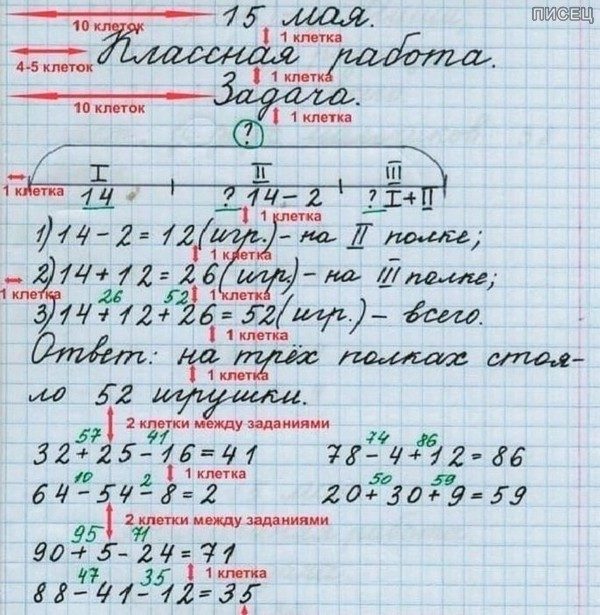 ПИСЕЦ
10 клеток 15 мая.
1 клетка
4-5 клеток Классная работа.
1 клетка
10 клеток Задача.
1 клетка
?
I II III
1 клетка 14 ? 14-2 ? I+II
1 клетка
1) 14-2=12(игр.)- на II полке;
1 клетка
2) 14+12=26(игр.)- на III полке;
1 клетка 26 52 1 клетка
3) 14+12+26=52(игр.)- всего.
1 клетка
Ответ: на трёх полках стоя-
1 клетка
ло 52 игрушки.
2 клетки между заданиями
57 41 74 86
32+25-16=41 78-4+12=86
1 клетка
10 2 50 59
64-54-8=2 20+30+9=59
2 клетки между заданиями
95 71
90+5-24=71
1 клетка
47 35
88-41-12=35